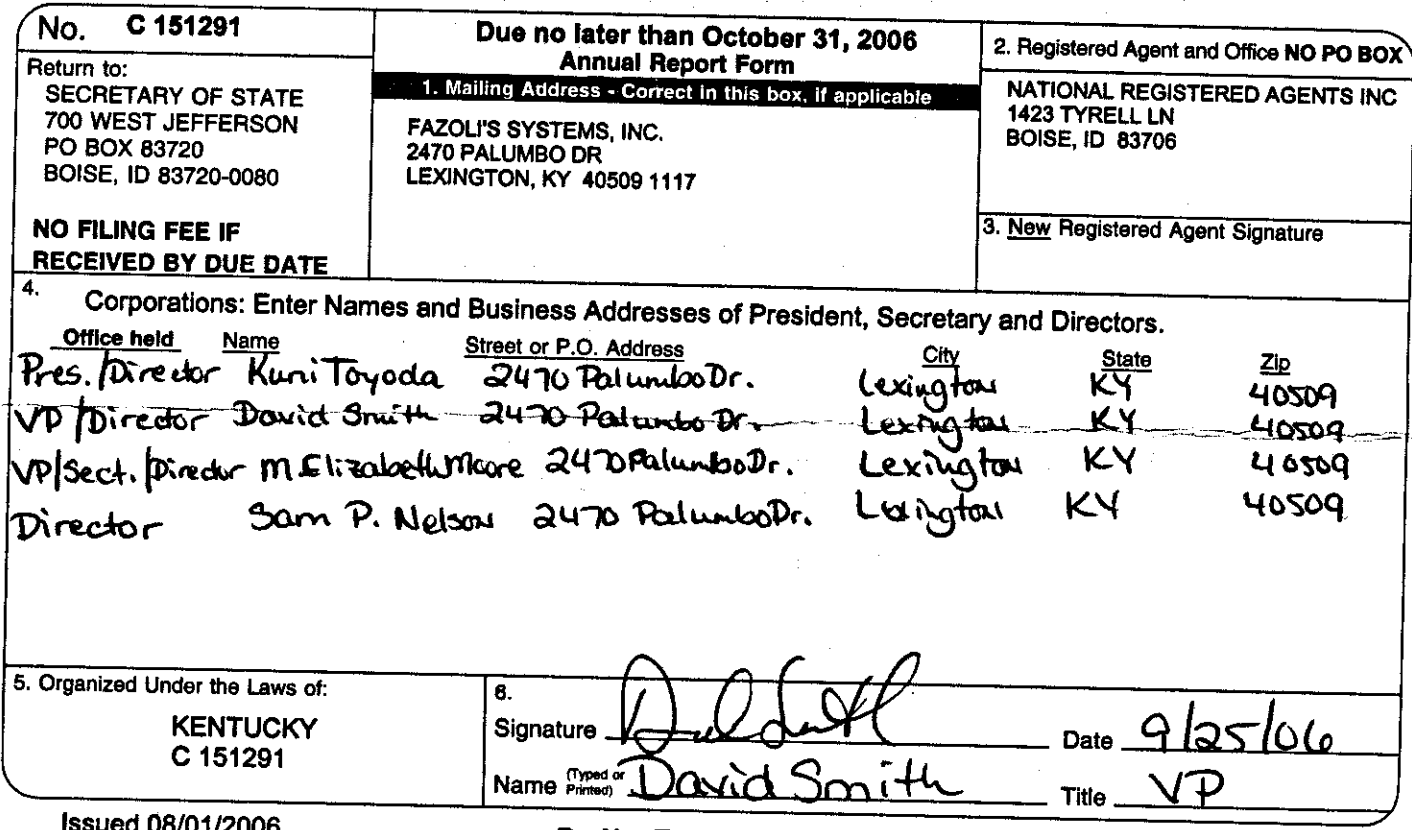 No. C 151291
Return to:
SECRETARY OF STATE
700 WEST JEFFERSON
PO BOX 83720
BOISE, ID 83720-0080
NO FILING FEE IF
RECEIVED BY DUE DATE
Due no later than October 31, 2006
Annual Report Form
1. Mailing Address - Correct in this box, if applicable
FAZOLI'S SYSTEMS, INC.
2470 PALUMBO DR
LEXINGTON, KY 40509 1117
2. Registered Agent and Office NO PO BOX
NATIONAL REGISTERED AGENTS INC
1423 TYRELL LN
BOISE, ID 83706
3. New Registered Agent Signature
4. Corporations: Enter Names and Business Addresses of President, Secretary and Directors.
Office held Name Street or P.O. Address City State Zip
Pres./Director Kuni Toyoda 2470 Palumbo Dr. Lexington KY 40509
VP/Director David Smith 2470 Palumbo Dr. Lexington KY 40509
VP/Sect./Director M Elizabeth Moore 2470 Palumbo Dr. Lexington KY 40509
Director Sam P. Nelson 2470 Palumbo Dr. Lexington KY 40509
5. Organized Under the Laws of:
KENTUCKY
C 151291
6.
Signature David Smith Date 9/25/06
Name (Typed or Printed) David Smith Title VP
Issued 08/01/2006